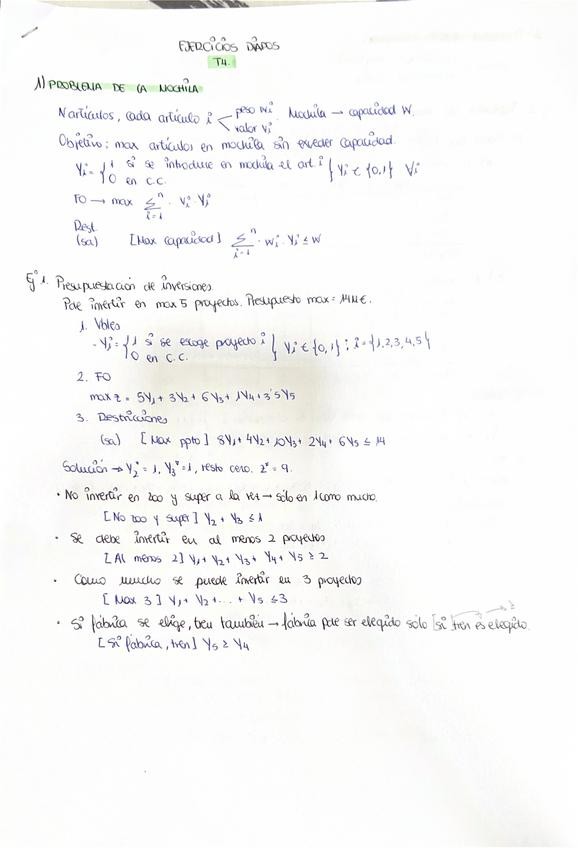 EJERCICIOS DIAPOS
T4.
1) PROBLEMA DE LA MOCHILA
N artículos, cada artículo i < peso wi valor vi. Mochila → capacidad W.
Objetivo: max artículos en mochila sin exceder capacidad.
Yi = { 1 si se introduce en mochila el art. i } Yi ∈ {0,1} ∀i
0 en c.c.
FO → max Σ i=1 n · Vi Yi
Rest.
(sa) [Max capacidad] Σ i=1 n · Wi · Yi ≤ W
Ejº 1. Presupuestación de inversiones.
Pde invertir en max 5 proyectos. Presupuesto max = 14M€.
1. Vbles
- Yi = { 1 si se escoge proyecto i } Yi ∈ {0,1} ; i = {1,2,3,4,5}
0 en c.c.
2. FO
max z = 5Y1 + 3Y2 + 6Y3 + 1Y4 + 3'5Y5
3. Restricciones
(sa) [Max ppto] 8Y1 + 4Y2 + 10Y3 + 2Y4 + 6Y5 ≤ 14
Solución → Y2* = 1, Y3* = 1, resto cero. z* = 9.
· No invertir en zoo y super a la vez → sólo en 1 como mucho.
[No zoo y super] Y2 + Y3 ≤ 1
· Se debe invertir en al menos 2 proyectos
[Al menos 2] Y1 + Y2 + Y3 + Y4 + Y5 ≥ 2
· Como mucho se puede invertir en 3 proyectos
[Max 3] Y1 + Y2 + ... + Y5 ≤ 3
· Si fábrica se elige, tren también → fábrica pde ser elegido sólo [si] tren es elegido.
[Si fábrica, tren] Y5 ≥ Y4